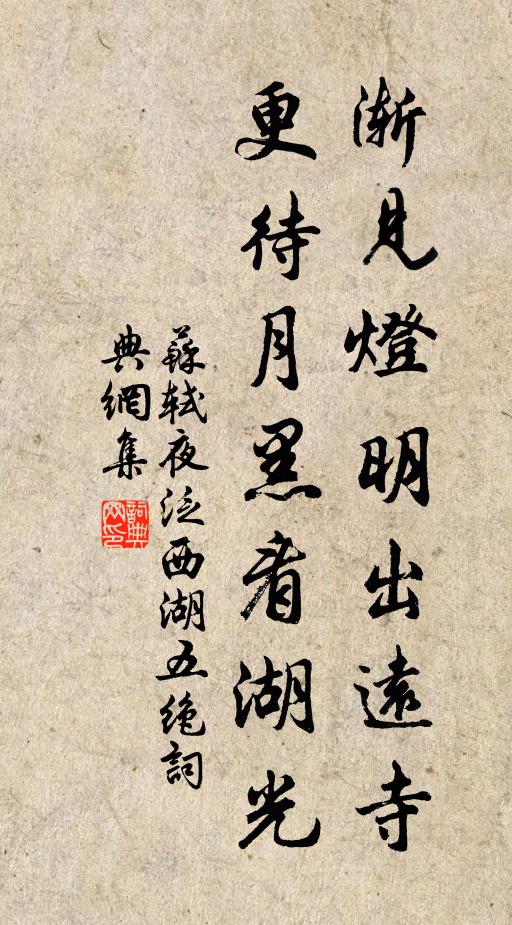 漸見燈明出遠寺
更待月黑看湖光
蘇軾夜泛西湖五絕詞
典網集
詞典網印